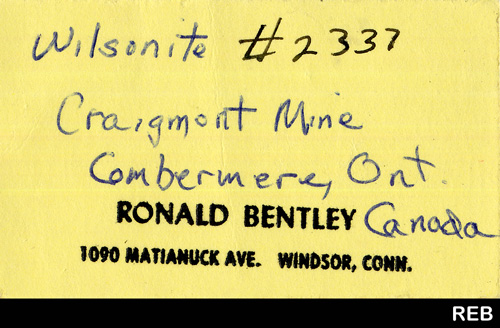 Wilsonite #2337
Craigmont Mine
Combermere, Ont.
Canada
RONALD BENTLEY
1090 MATIANUCK AVE. WINDSOR, CONN.
REB